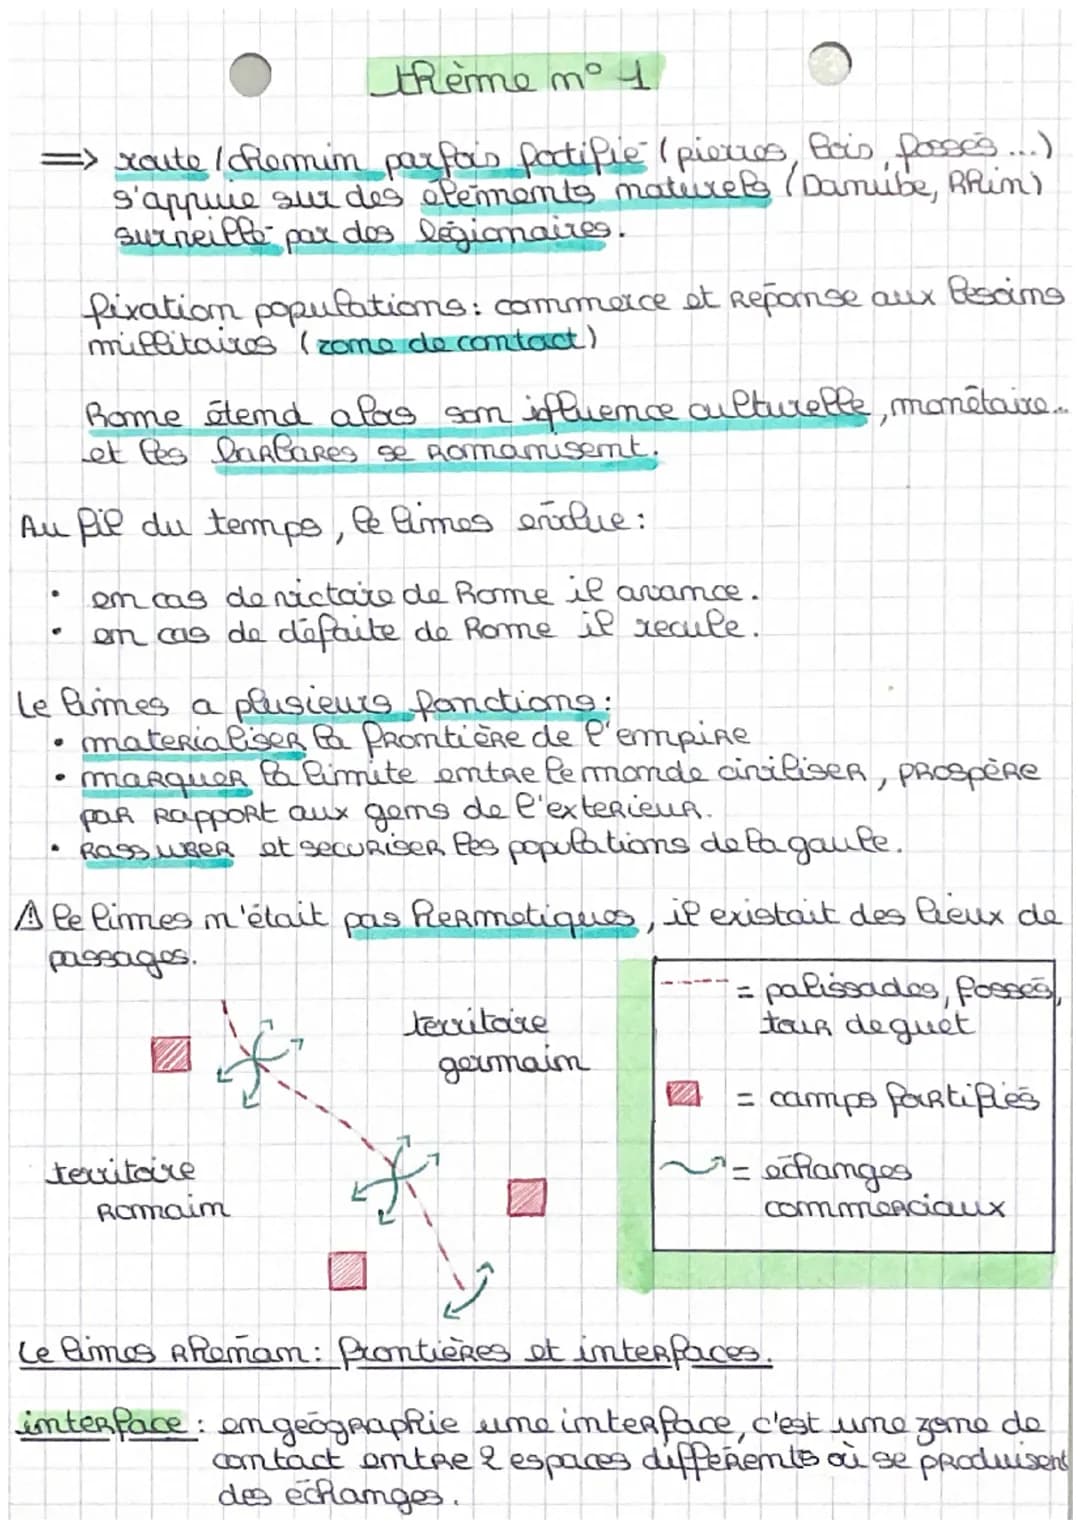 thème n° 1
=> route / chemin parfois fortifié (pierres, bois, fossés ...)
s'appuie sur des éléments naturels (Danube, Rhin)
surveillé par des légionnaires.
fixation populations : commerce et réponse aux besoins
millitaires (zone de contact)
Rome étend alors son influence culturelle, monétaire...
et les barbares se romanisent.
Au fil du temps, le limes évolue :
• en cas de victoire de Rome il avance.
• en cas de défaite de Rome il recule.
Le limes a plusieurs fonctions :
• materialiser la frontière de l'empire
• marquer la limite entre le monde civiliser, prospère
par rapport aux gens de l'exterieur.
• Rassurer et securiser les populations de la gaule.
⚠ le limes n'était pas hermetiques, il existait des lieux de
passages.
territoire
germain
territoire
romain
= palissades, fossés,
tour de guet
= camps fortifiés
= échanges
commerciaux
Le limes rhénan : frontières et interfaces.
interface : en géographie une interface, c'est une zone de
contact entre 2 espaces différents où se produisent
des échanges.